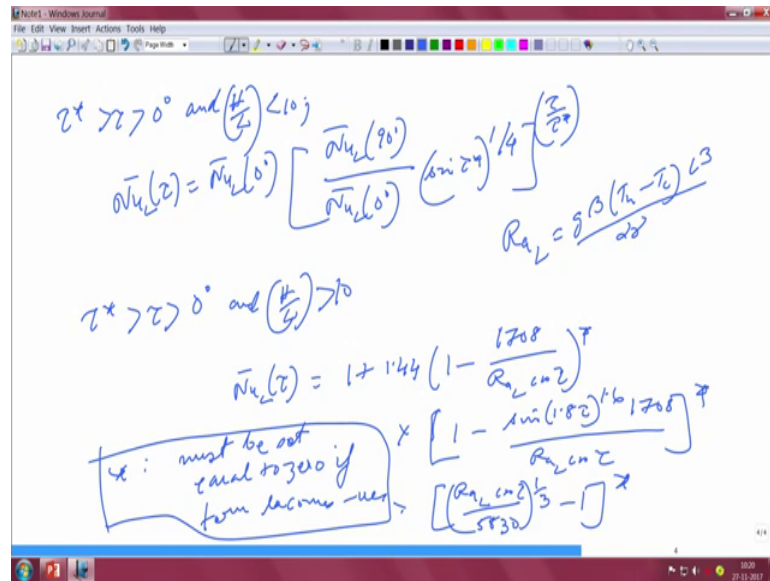 Note1 - Windows Journal
File Edit View Insert Actions Tools Help
Page Width
τ* > τ > 0° and (H/L) < 10;
N̄u_L(τ) = N̄u_L(0°) [ N̄u_L(90°) / N̄u_L(0°) (sin τ*)^1/4 ]^(τ/τ*)
Ra_L = gβ(T_h - T_c) L^3 / αν
τ* > τ > 0° and (H/L) > 10
N̄u_L(τ) = 1 + 1.44 (1 - 1708 / Ra_L cos τ)^*
× [1 - sin(1.8τ)^1.6 1708 / Ra_L cos τ]^*
* : must be set
equal to zero if
term becomes -ve
[(Ra_L cos τ / 5830)^1/3 - 1]^*
4/4
4
10:20
27-11-2017